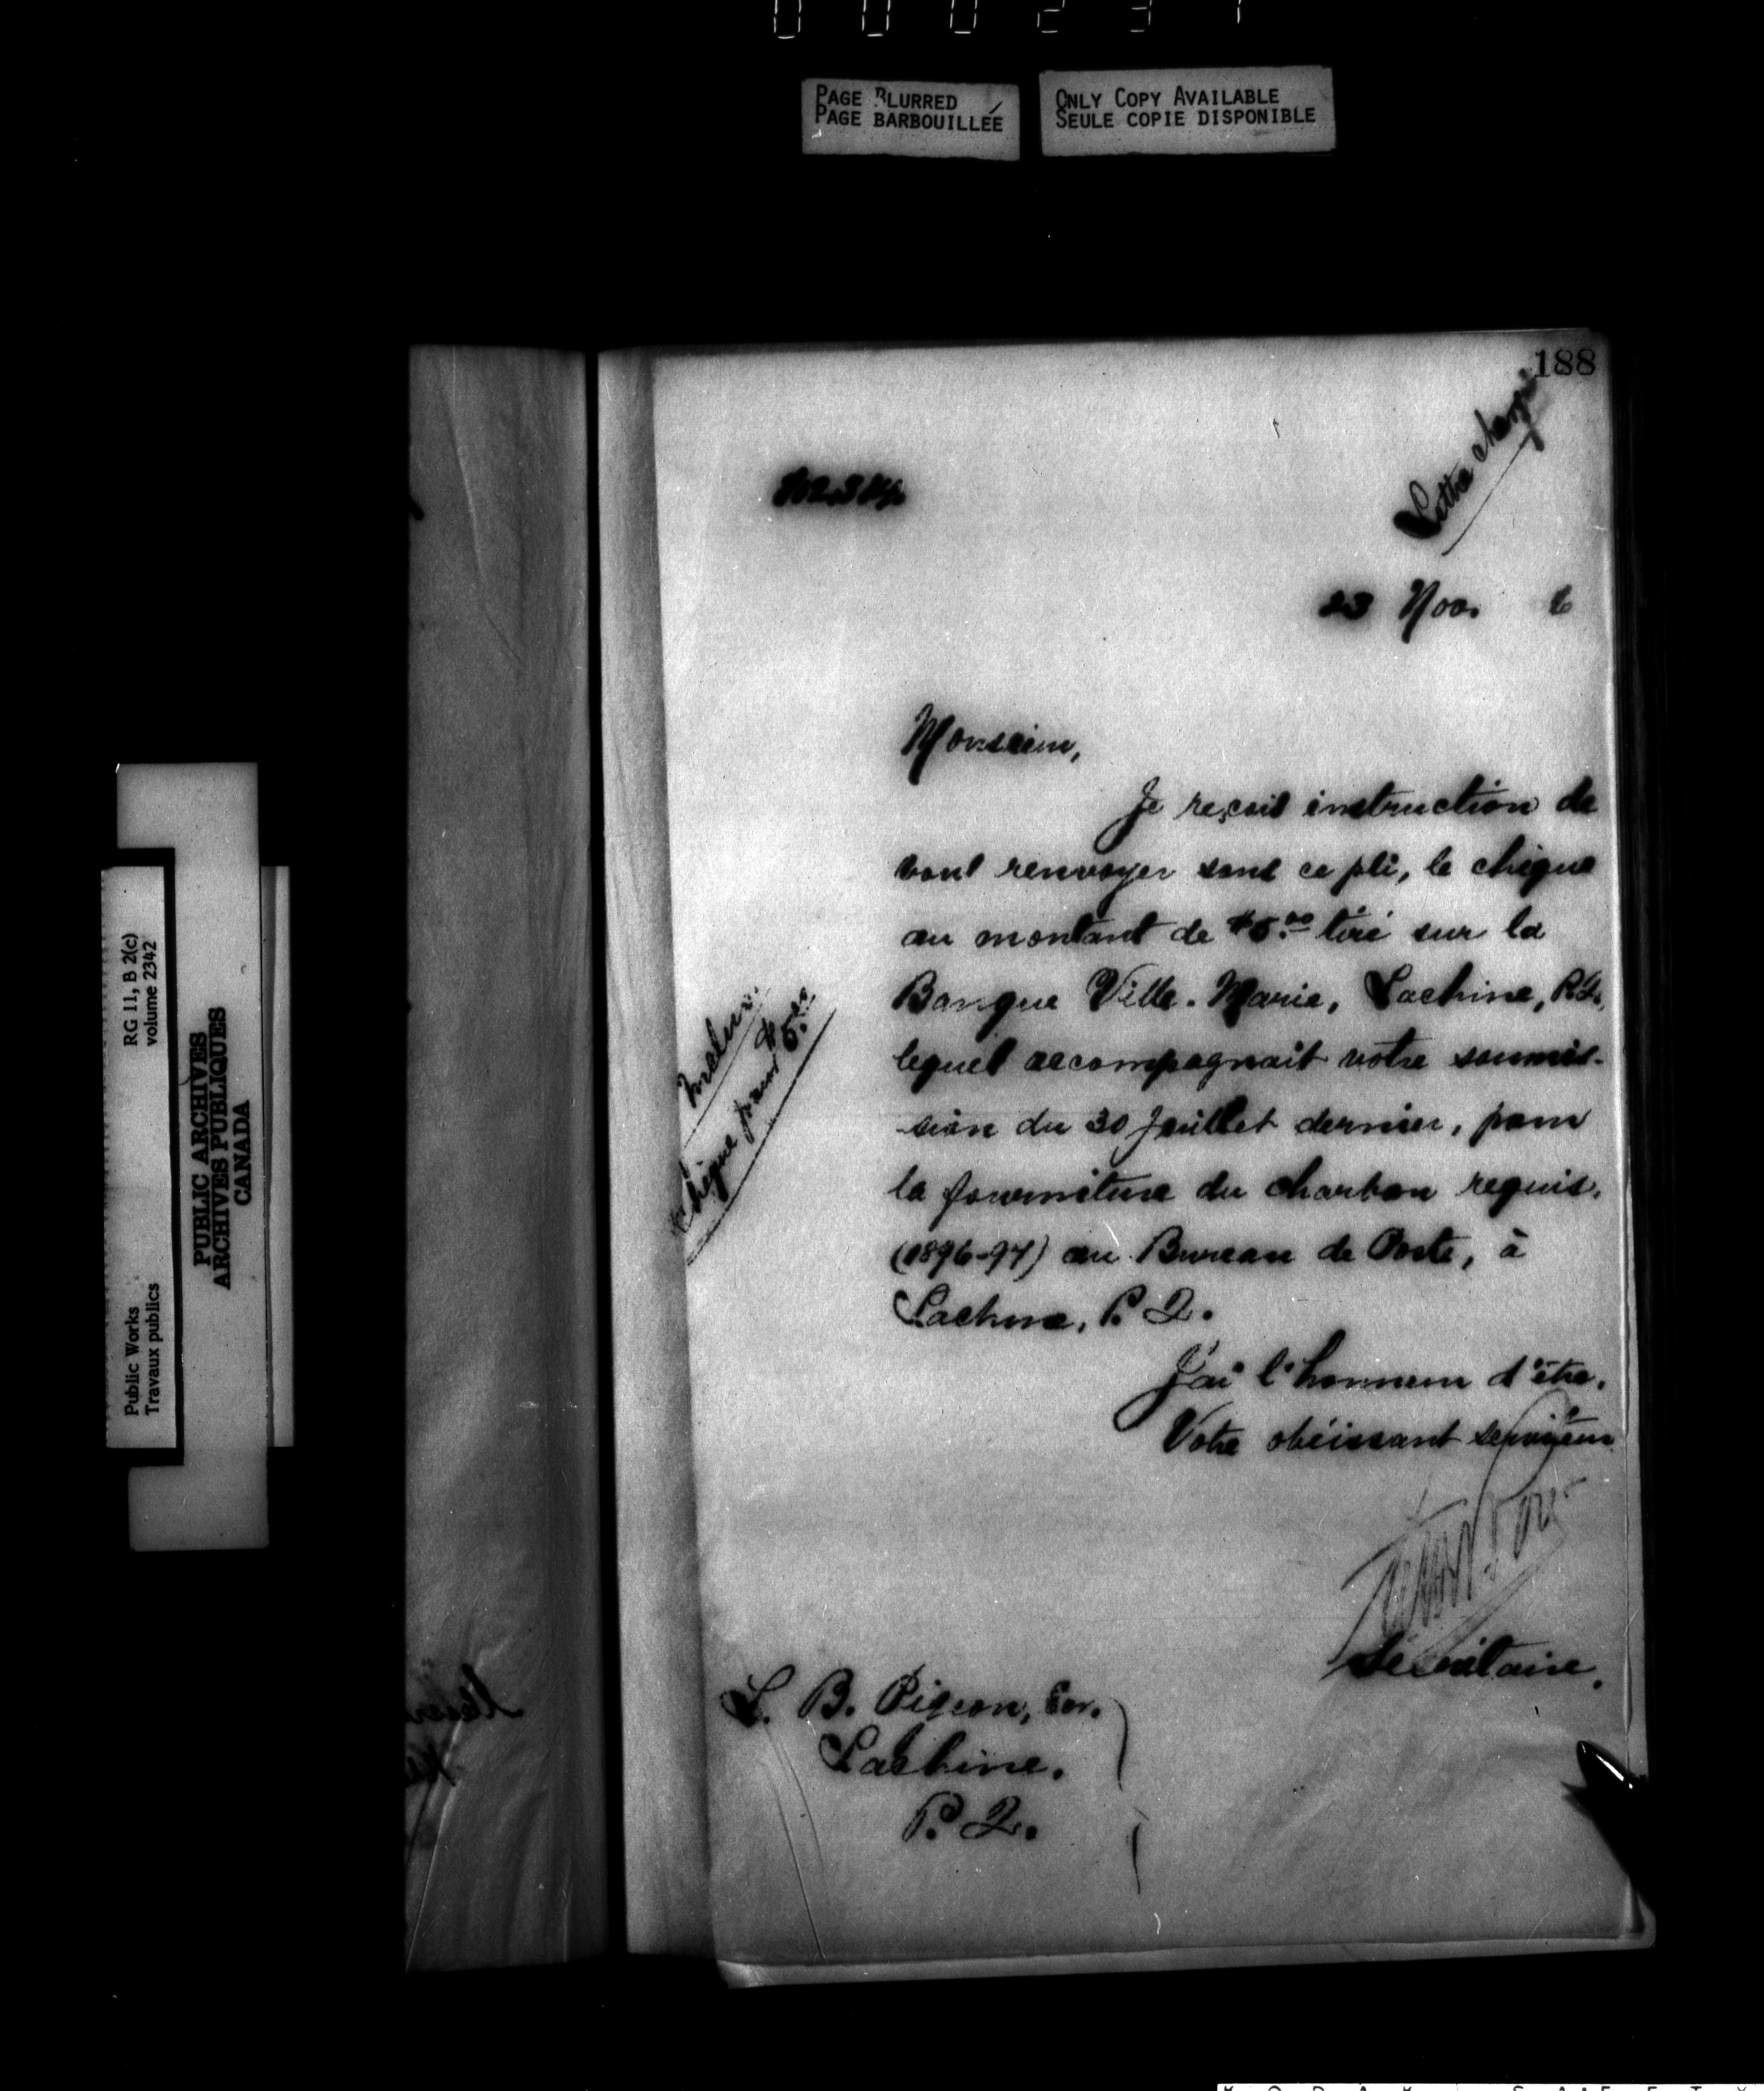 PAGE BLURRED
PAGE BARBOUILLÉE
ONLY COPY AVAILABLE
SEULE COPIE DISPONIBLE
RG 11, B 2(c)
volume 2342
PUBLIC ARCHIVES
ARCHIVES PUBLIQUES
CANADA
Public Works
Travaux publics
188
Lettre chargée
23 Nov. 6
Monsieur,
Je reçois instruction de
vous renvoyer sous ce pli, le chèque
au montant de $5.00 tiré sur la
Banque Ville-Marie, Lachine, P.Q.,
lequel accompagnait votre soumis-
-sion du 30 Juillet dernier, pour
la fourniture du charbon requis,
(1896-97) au Bureau de Poste, à
Lachine, P. Q.
chèque pour $5.00
J'ai l'honneur d'être,
Votre obéissant serviteur
Secrétaire.
L. B. Pigeon, Ecr.
Lachine.
P. Q.